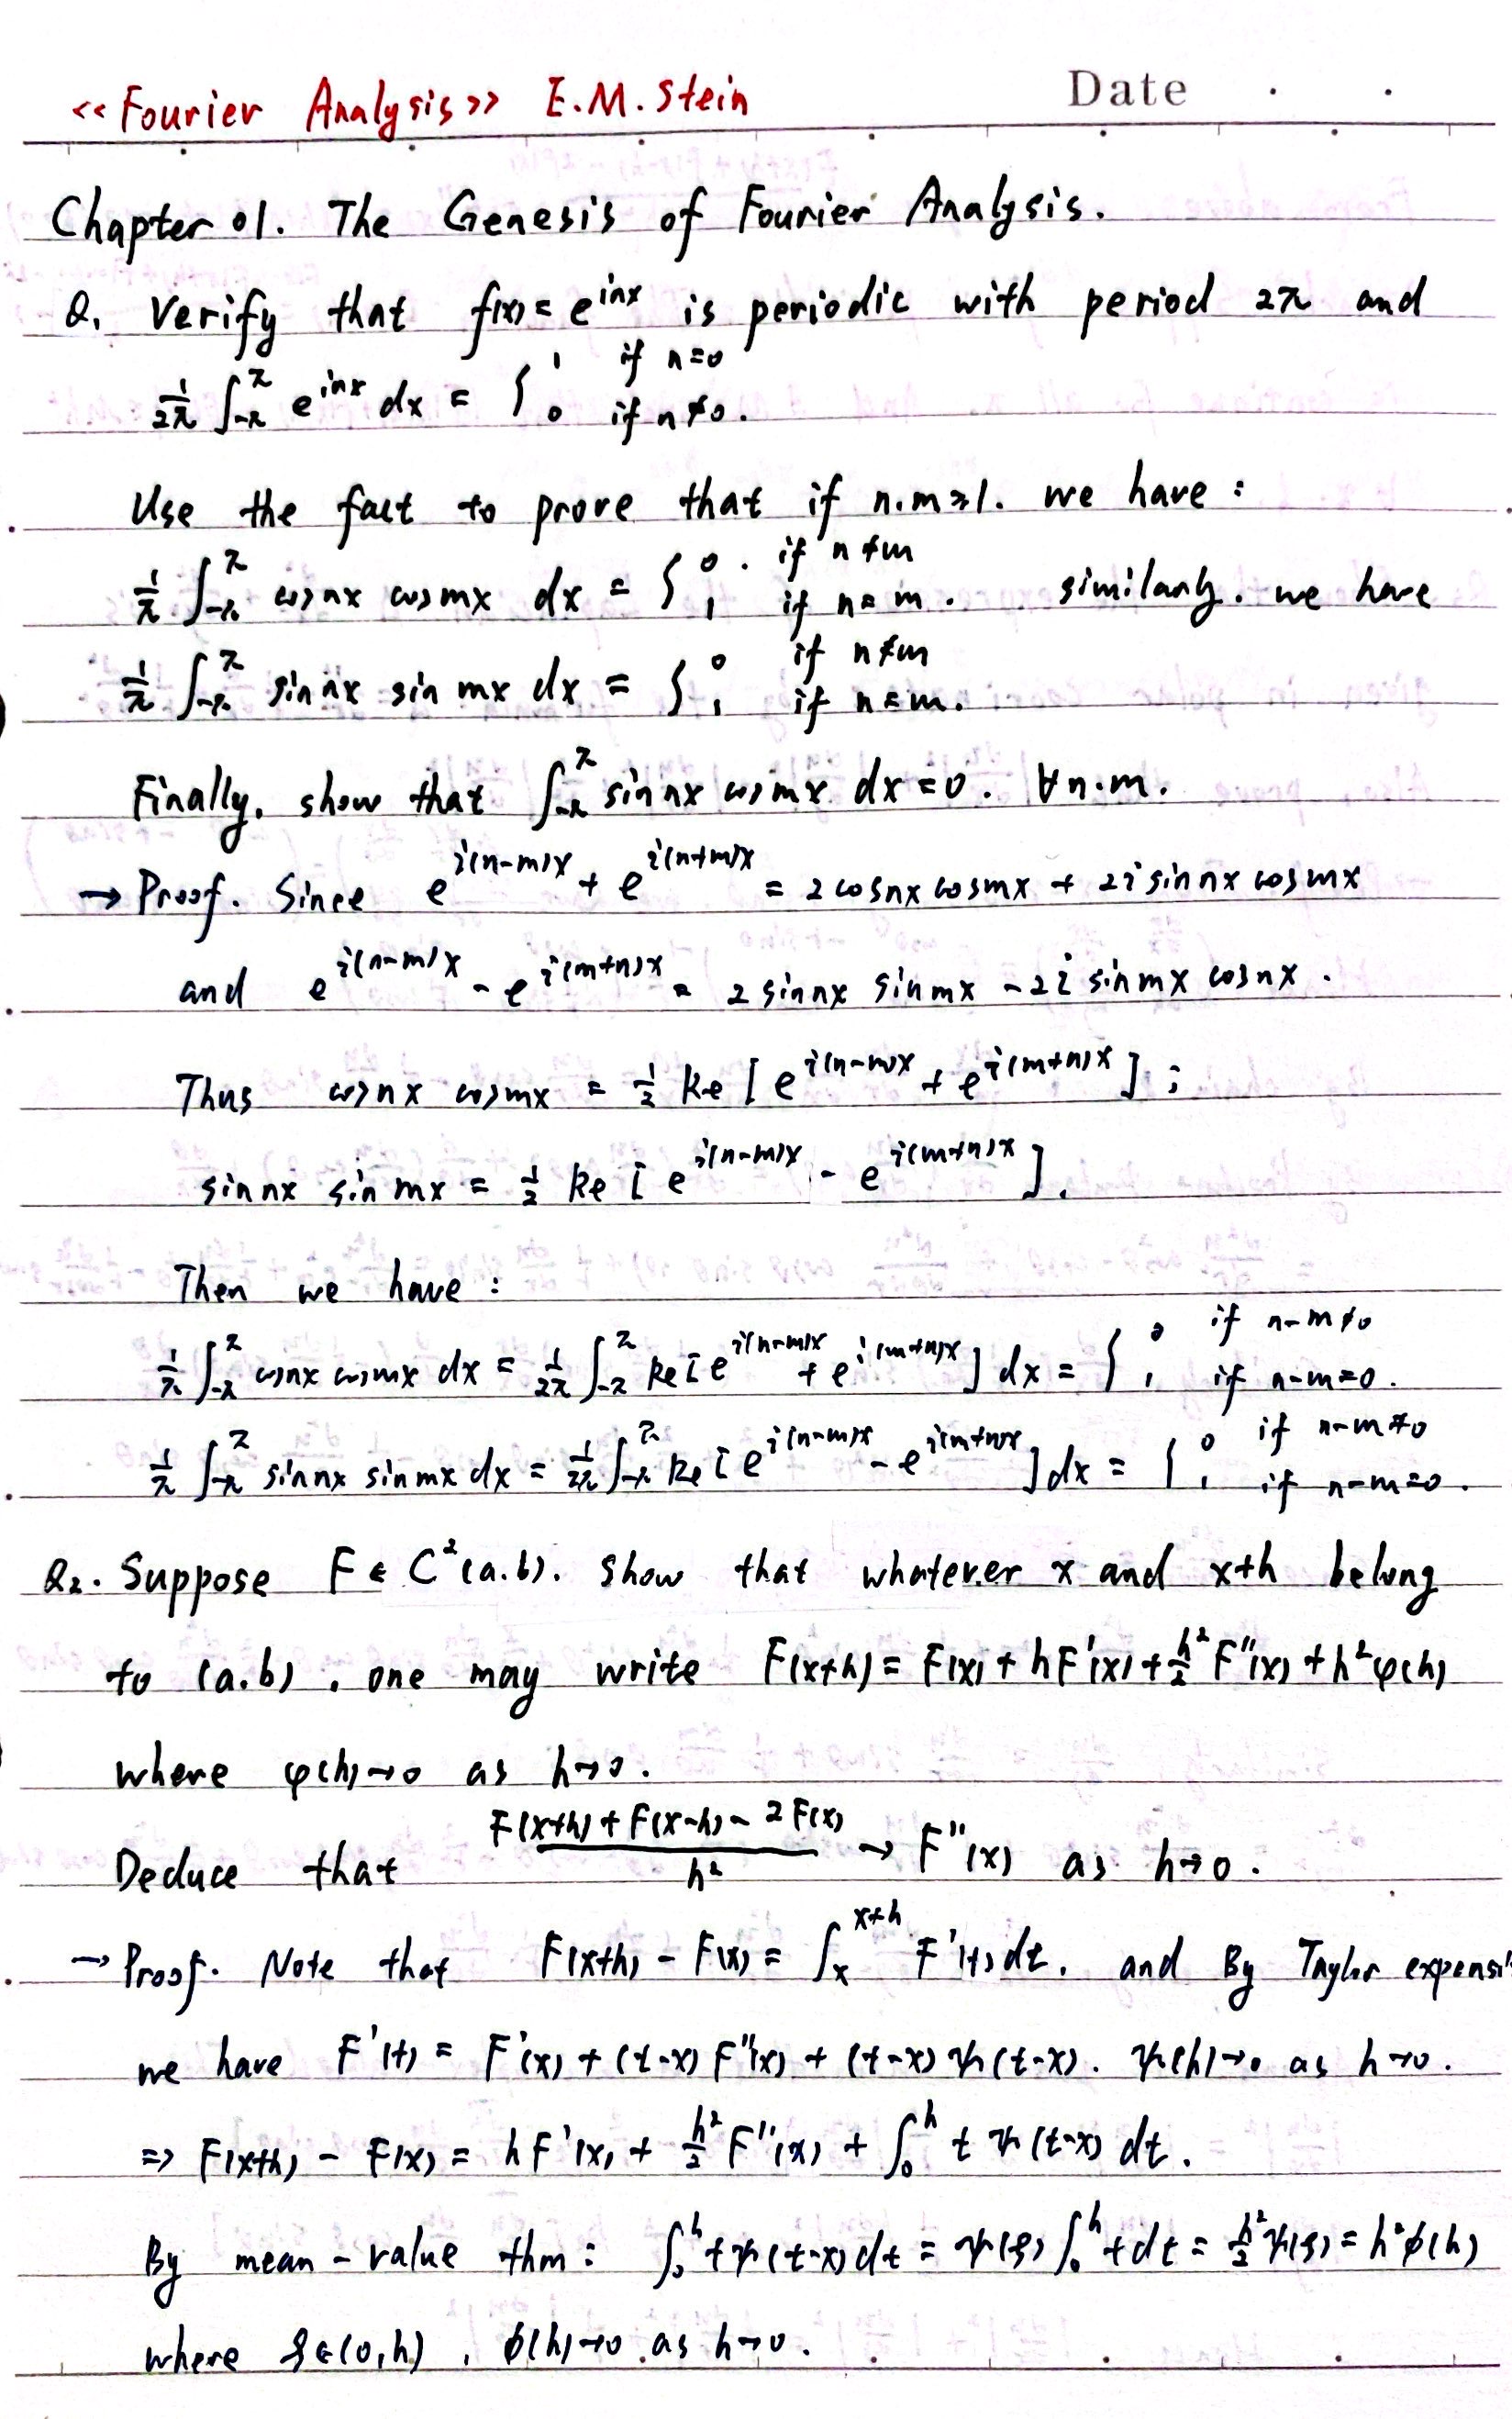 <<Fourier Analysis>> E.M.Stein
Date . .
Chapter 01. The Genesis of Fourier Analysis.
Q1. Verify that f(x) = e^{inx} is periodic with period 2π and
1/2π ∫_{-π}^{π} e^{inx} dx = { 1 if n=0
0 if n≠0.
Use the fact to prove that if n.m≥1. we have :
1/π ∫_{-π}^{π} cosnx cosmx dx = { 0. if n≠m
1 if n=m. similarly. we have
1/π ∫_{-π}^{π} sin nx sin mx dx = { 0 if n≠m
1 if n=m.
Finally, show that ∫_{-π}^{π} sin nx cosmx dx = 0. ∀n.m.
→ Proof. Since e^{i(n-m)x} + e^{i(n+m)x} = 2cosnx cosmx + 2i sinnx cosmx
and e^{i(n-m)x} - e^{i(m+n)x} = 2 sinnx sinmx - 2i sinmx cosnx.
Thus cosnx cosmx = 1/2 Re [e^{i(n-m)x} + e^{i(m+n)x}] ;
sinnx sinmx = 1/2 Re [e^{i(n-m)x} - e^{i(m+n)x}].
Then we have :
1/π ∫_{-π}^{π} cosnx cosmx dx = 1/2π ∫_{-π}^{π} Re[e^{i(n-m)x} + e^{i(m+n)x}] dx = { 0 if n-m≠0
1 if n-m=0.
1/π ∫_{-π}^{π} sinnx sinmx dx = 1/2π ∫_{-π}^{π} Re[e^{i(n-m)x} - e^{i(m+n)x}] dx = { 0 if n-m≠0
1 if n-m=0.
Q2. Suppose F ∈ C²(a.b). show that whatever x and x+h belong
to (a.b). one may write F(x+h) = F(x) + hF'(x) + h²/2 F''(x) + h²φ(h)
where φ(h)→0 as h→0.
Deduce that (F(x+h) + F(x-h) - 2F(x))/h² → F''(x) as h→0.
→ Proof. Note that F(x+h) - F(x) = ∫_x^{x+h} F'(t)dt. and By Taylor expansi
we have F'(t) = F'(x) + (t-x)F''(x) + (t-x)ψ(t-x). ψ(h)→0 as h→0.
⇒ F(x+h) - F(x) = hF'(x) + h²/2 F''(x) + ∫_0^h t ψ(t-x) dt.
By mean-value thm : ∫_0^h tψ(t-x)dt = ψ(ξ) ∫_0^h tdt = h²/2 ψ(ξ) = h²φ(h)
where ξ∈(0,h), φ(h)→0 as h→0.